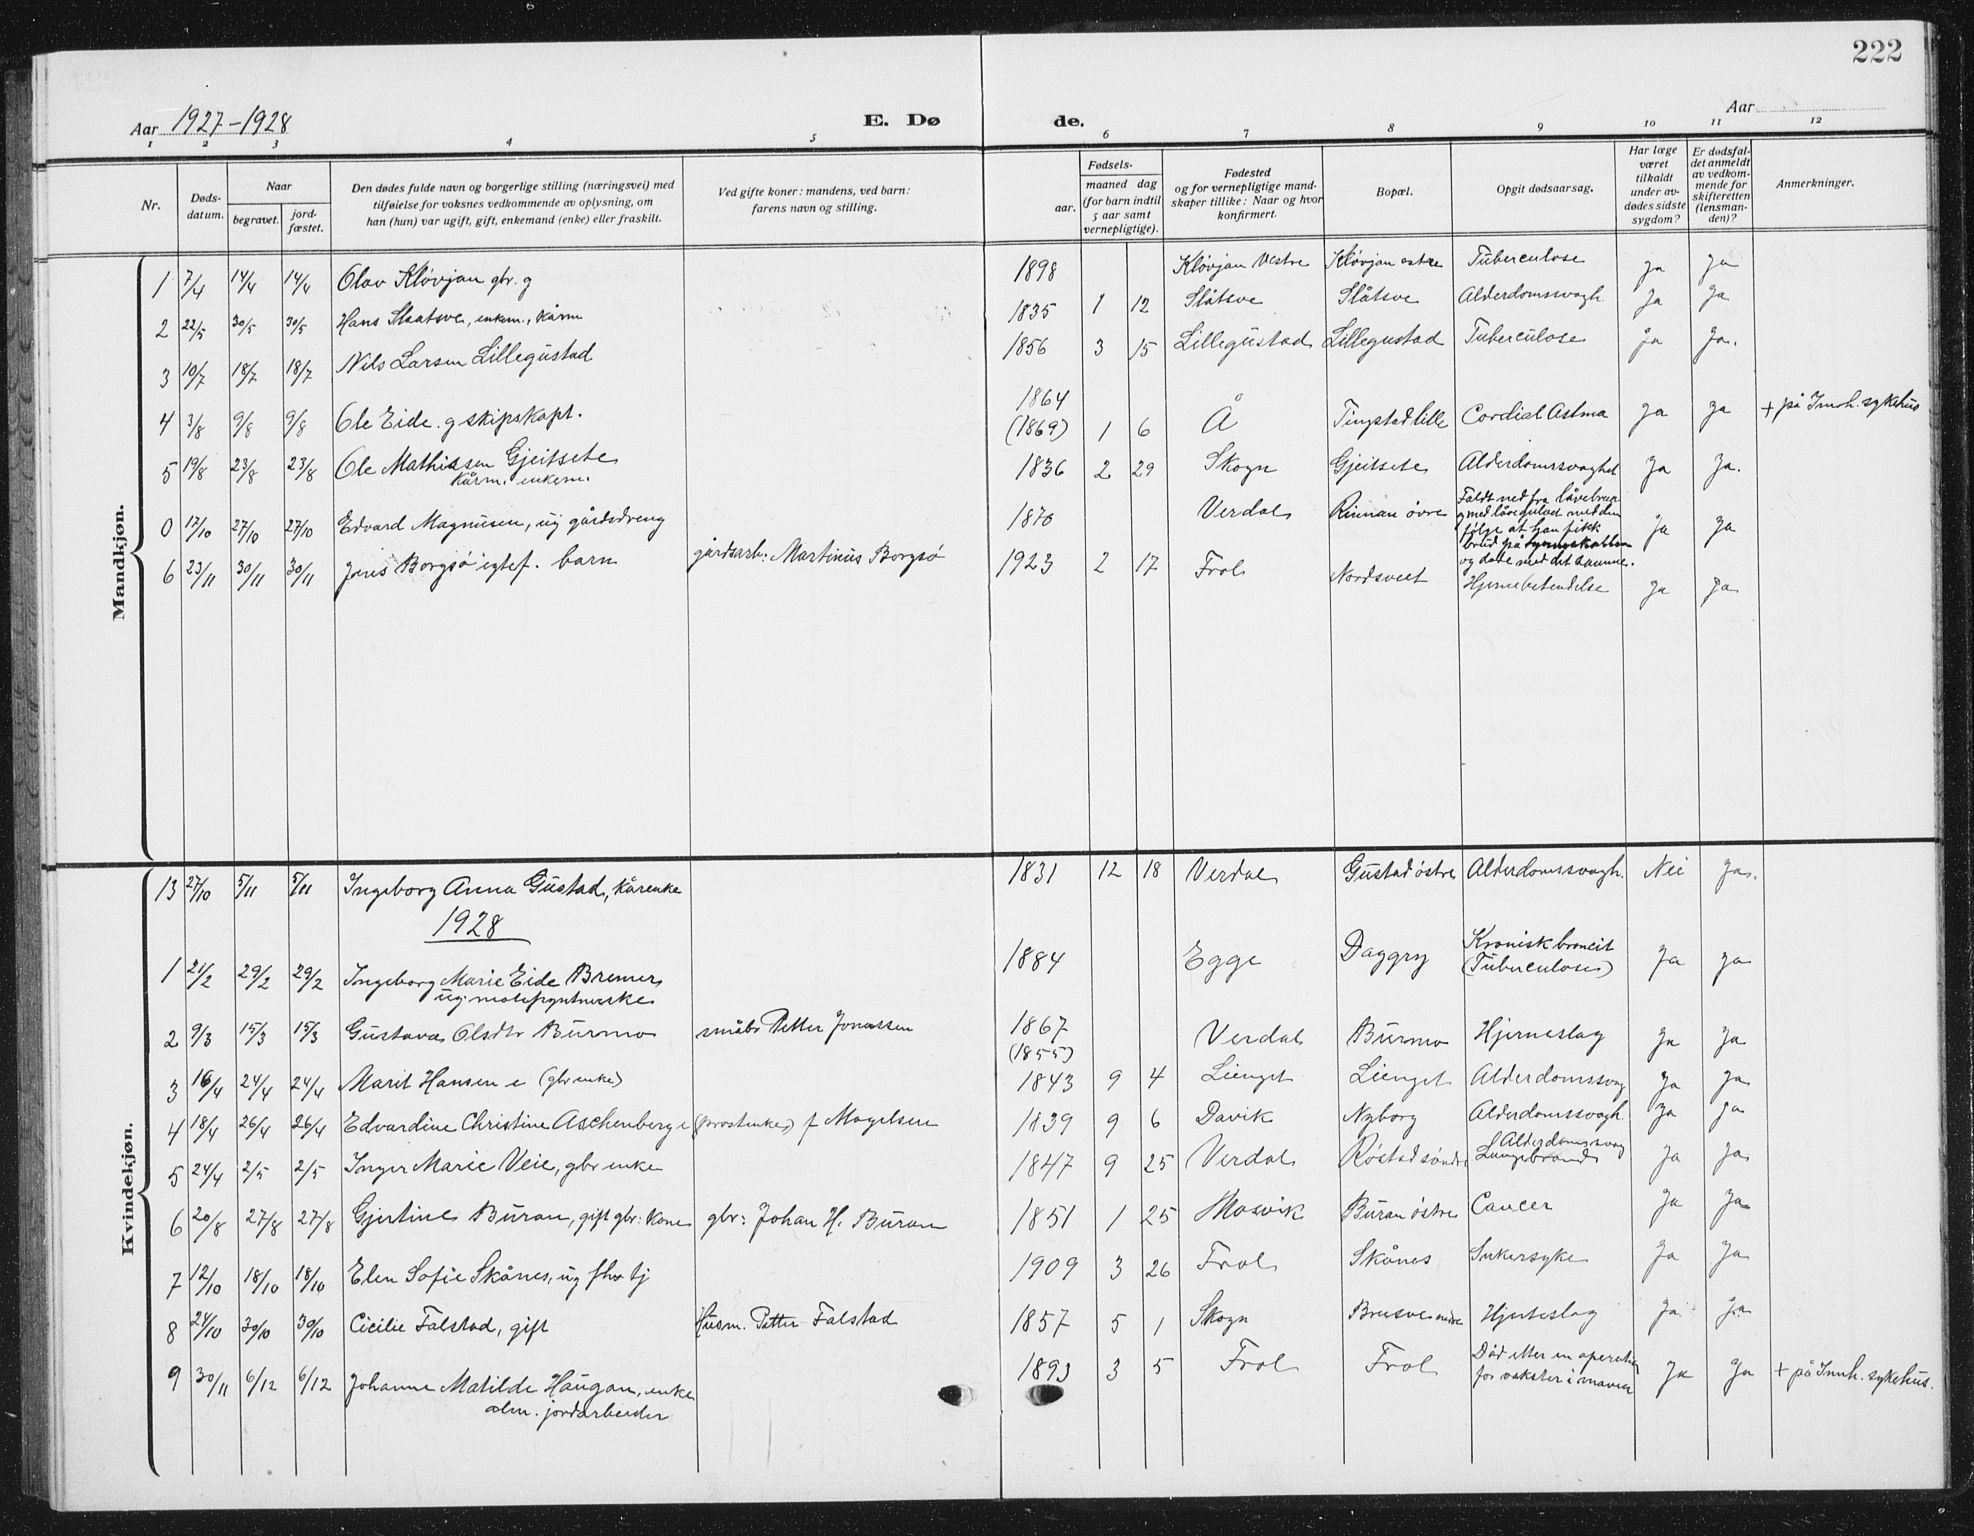 222
Aar 1927-1928 E. Dø de. Aar
1 2 3 4 5 6 7 8 9 10 11 12
Nr.
Døds-
datum.
Naar
begravet.
jord-
fæstet.
Den dødes fulde navn og borgerlige stilling (næringsvei) med
tilføielse for voksnes vedkommende av oplysning, om
han (hun) var ugift, gift, enkemand (enke) eller fraskilt.
Ved gifte koner: mandens, ved barn:
farens navn og stilling.
Fødsels-
aar.
maaned dag
(for barn indtil
5 aar samt
vernepligtige).
Fødested
og for vernepligtige mand-
skaper tillike: Naar og hvor
konfirmert.
Bopæl.
Opgit dødsaarsag.
Har læge
været
tilkaldt
under av-
dødes sidste
sygdom?
Er dødsfal-
det anmeldt
av vedkom-
mende for
skifteretten
(lensman-
den)?
Anmerkninger.
Mandkjøn.
1 7/4 14/4 14/4 Olav Kløvjan gbr. g 1898 Kløvjan Vestre Kløvjan vstre Tuberculose Ja Ja
2 22/5 30/5 30/5 Hans Slaatsve, enkem., kårm 1835 1 12 Slåtsve Slåtsve Alderdomssvagh. Ja Ja
3 10/7 18/7 18/7 Nils Larsen Lillegustad 1856 3 15 Lillegustad Lillegustad Tuberculose Ja Ja.
4 3/8 9/8 9/8 Ole Eide. g skipskapt. 1864 (1869) 1 6 Å Tingstad lille Cordial Astma Ja Ja + på Innh. sykehus
5 19/8 23/8 23/8 Ole Mathiasen Gjeitsete 1836 2 29 Skogn Gjeitsete Alderdomssvaghet Ja Ja.
kårm. enkem.
0 17/10 27/10 27/10 Edvard Magnusen, ug gårdsdreng 1870 Verdal Rinnan øvre Faldt ned fra låvebruen
og med låvegulvet med den
følge at han fikk
brud på hjerneskallen
og døde med det samme. Ja Ja
6 23/11 30/11 30/11 Jens Borgsø egtef. barn gårdsarb: Martinus Borgsø 1923 2 17 Frol Nordsveet Hjernebetendelse Ja Ja
Kvindekjøn.
13 27/10 5/11 5/11 Ingeborg Anna Gustad, kårenke 1831 12 18 Verdal Gustad østre Alderdomssvagh. Nei Ja.
1928
1 21/2 29/2 29/2 Ingeborg Marie Eide Bremer 1884 Egge Daggry Kronisk broncit
ug. motepynterske (Tuberculose) Ja Ja
2 9/3 15/3 15/3 Gustava Olsdtr Burmo småbr Petter Jonassen 1867 (1855) Verdal Burmo Hjerneslag Ja Ja
3 16/4 24/4 24/4 Marit Hansen e (gbr enke) 1843 9 4 Lienget Lienget Alderdomssvag Ja Ja
4 18/4 26/4 26/4 Edvardine Christine Aschenberg e (prostenke) f Magelsen 1839 9 6 Davik Nyborg Alderdomssvagh. Ja Ja
5 24/4 2/5 2/5 Inger Marie Veie, gbr enke 1847 9 25 Verdal Røstad søndre Alderdomssvag
Lungebrand Ja Ja
6 20/8 27/8 27/8 Gjertine Buran, gift gbr: kone gbr: Johan H. Buran 1851 1 25 Mosvik Buran østre Cancer Ja Ja
7 12/10 18/10 18/10 Elen Sofie Skånes, ug fhv tj 1909 3 26 Frol Skånes Sukersyke Ja Ja
8 24/10 30/10 30/10 Cicilie Falstad, gift Husm. Petter Falstad 1857 5 1 Skogn Breisve nedre Hjerteslag Ja Ja
9 30/11 6/12 6/12 Johanne Matilde Haugan, enke 1893 3 5 Frol Frol Død etter en operation
alm. jordarbeider for vekster i maven Ja Ja + på Innh. sykehus.